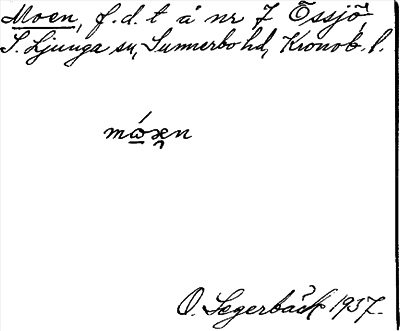 Moen, f.d. t å nr 7 Össjö,
S. Ljunga sn, Sunnerbo hd, Kronob. l.
O. Segerbäck 1937.